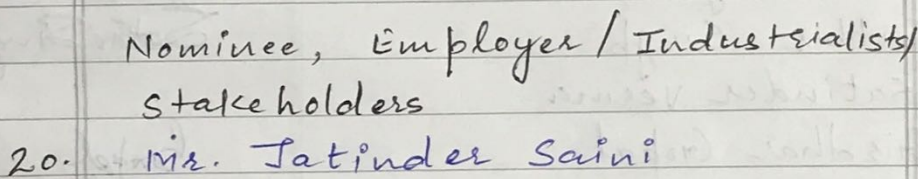 Nominee, Employer/Industrialists/
Stakeholders
20. Mr. Jatinder Saini